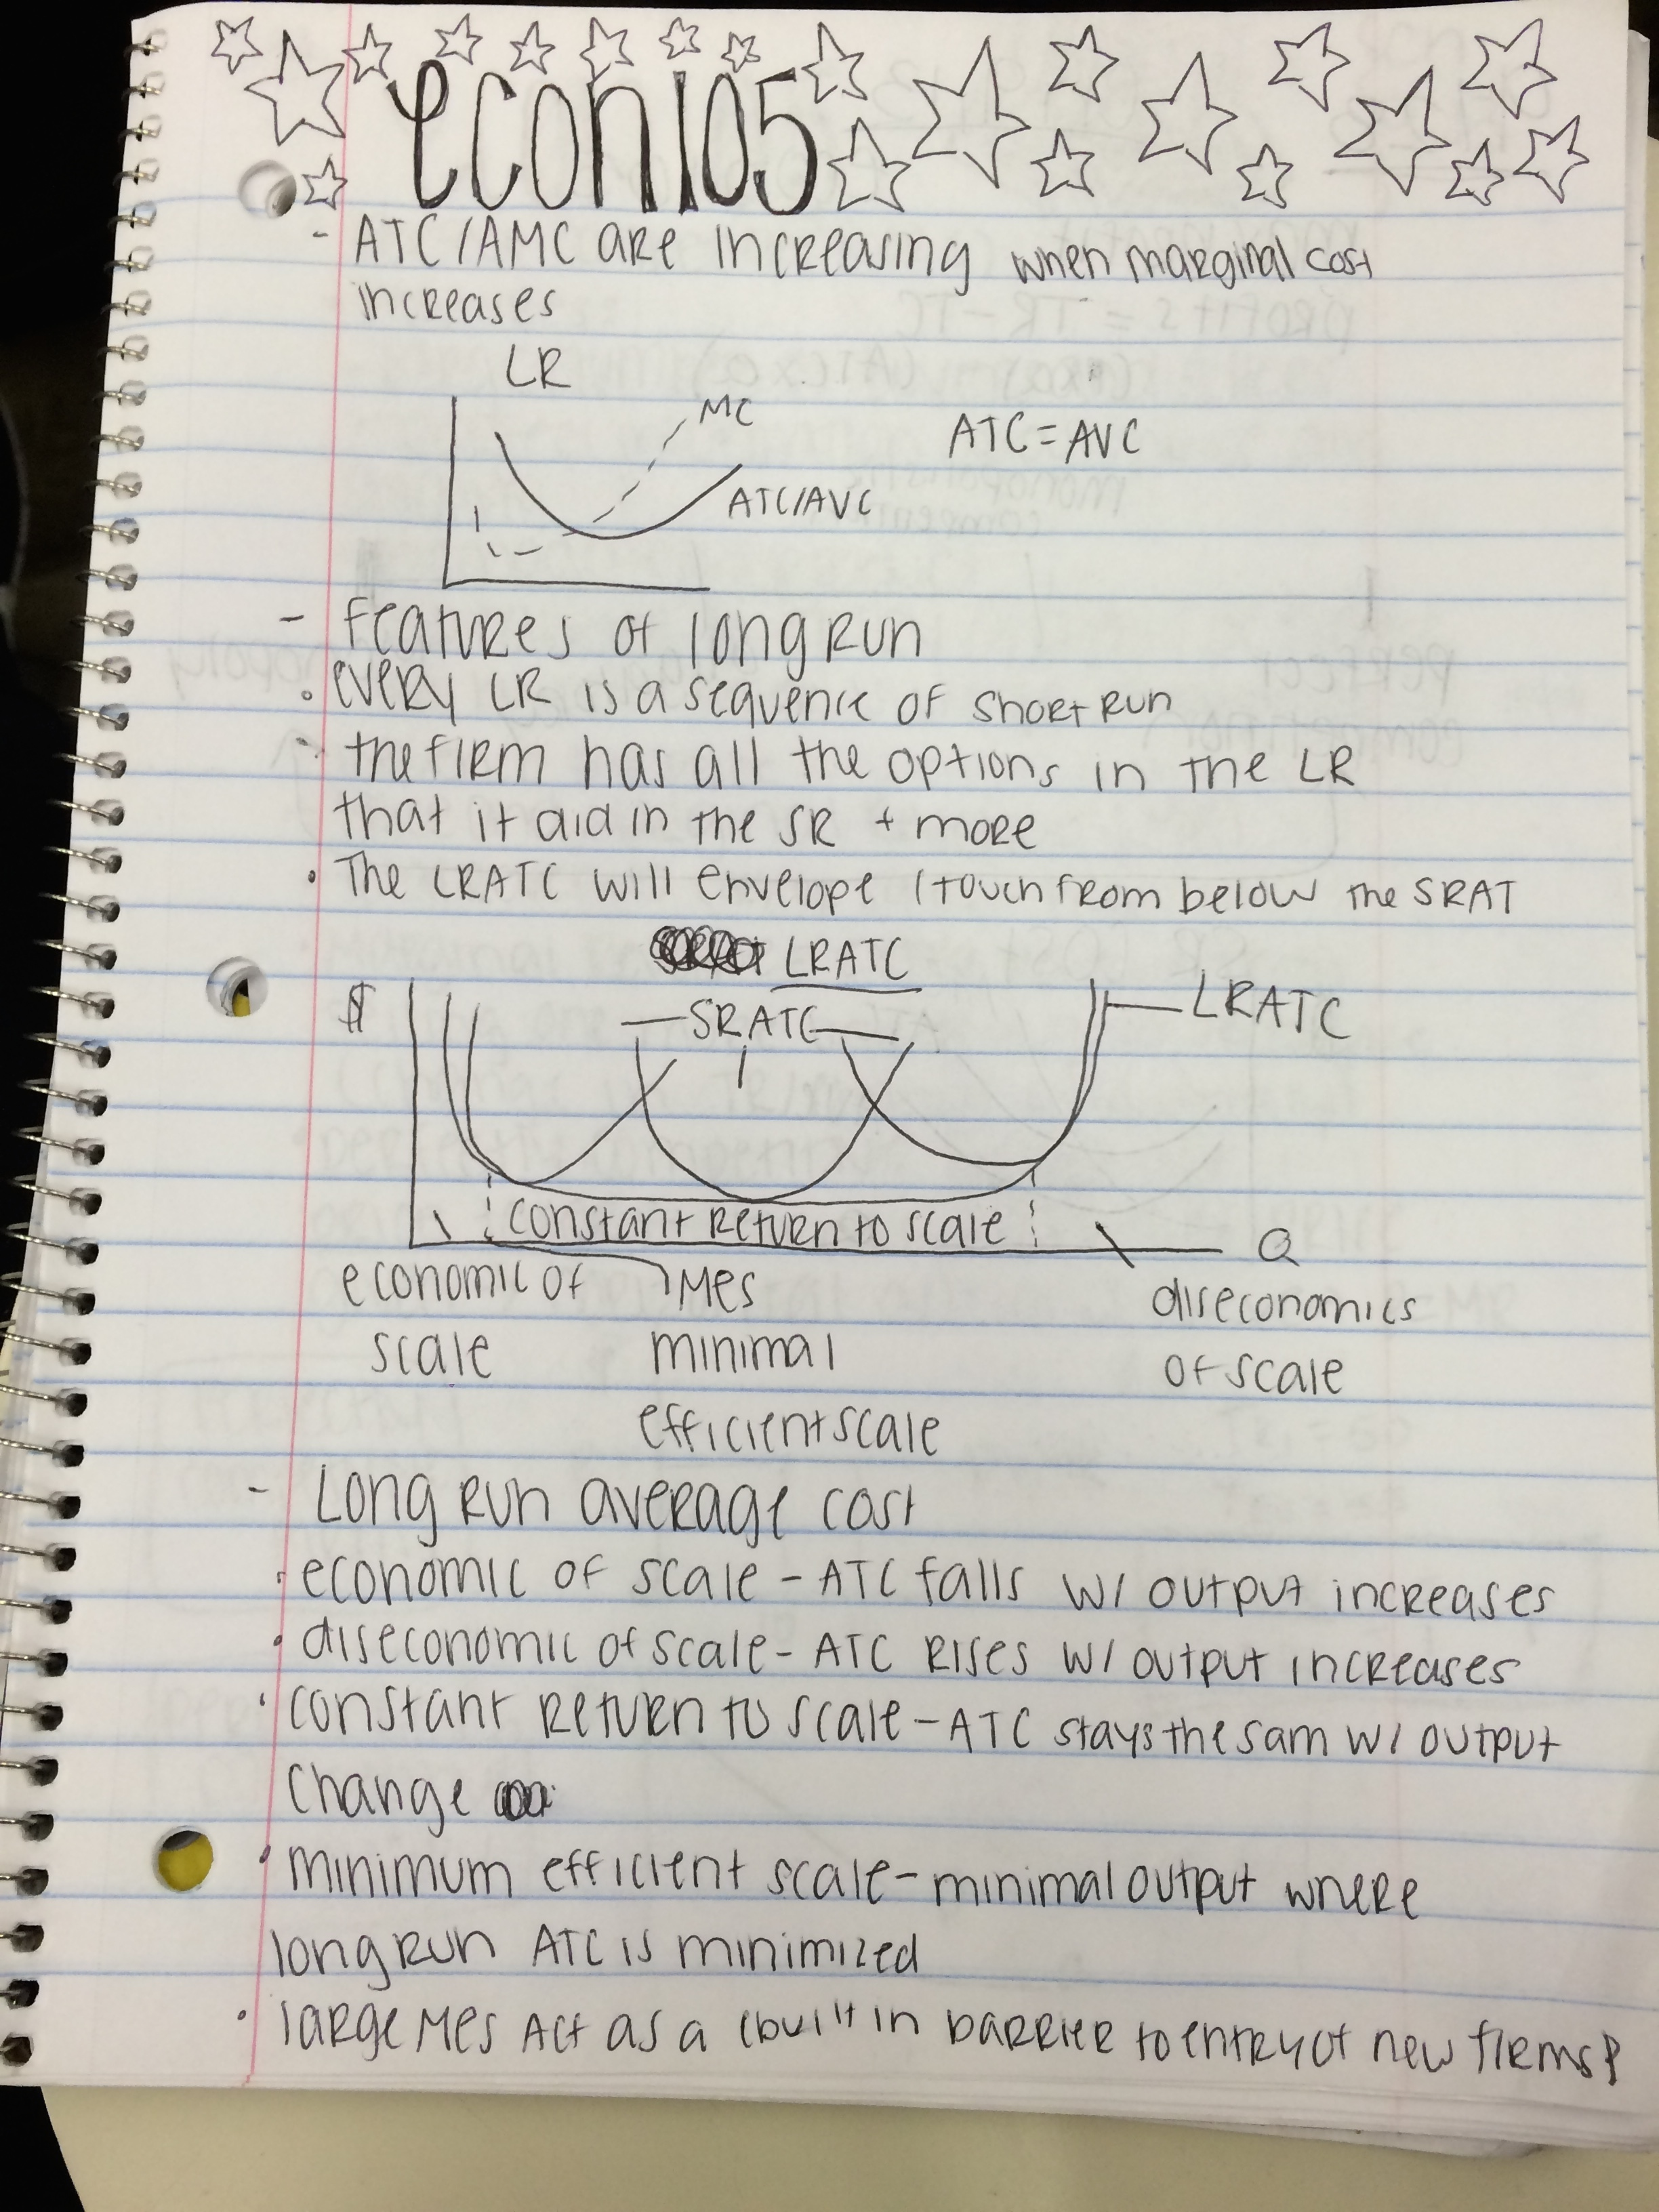 econ105
- ATC/AMC are increasing when marginal cost
increases
LR
MC
ATC=AVC
ATC/AVC
- features of long run
• every LR is a sequence of short run
- the firm has all the options in the LR
that it did in the SR + more
• The LRATC will envelope (touch from below the SRAT
LRATC
$ —SRATC— LRATC
constant return to scale Q
economic of MES diseconomics
scale minimal of scale
efficient scale
- Long run average cost
• economic of scale - ATC falls w/ output increases
• diseconomic of scale - ATC rises w/ output increases
• constant return to scale - ATC stays the sam w/ output
change
• minimum efficient scale - minimal output where
long run ATC is minimized
• large MES Act as a (built in barrier to entry of new firms)